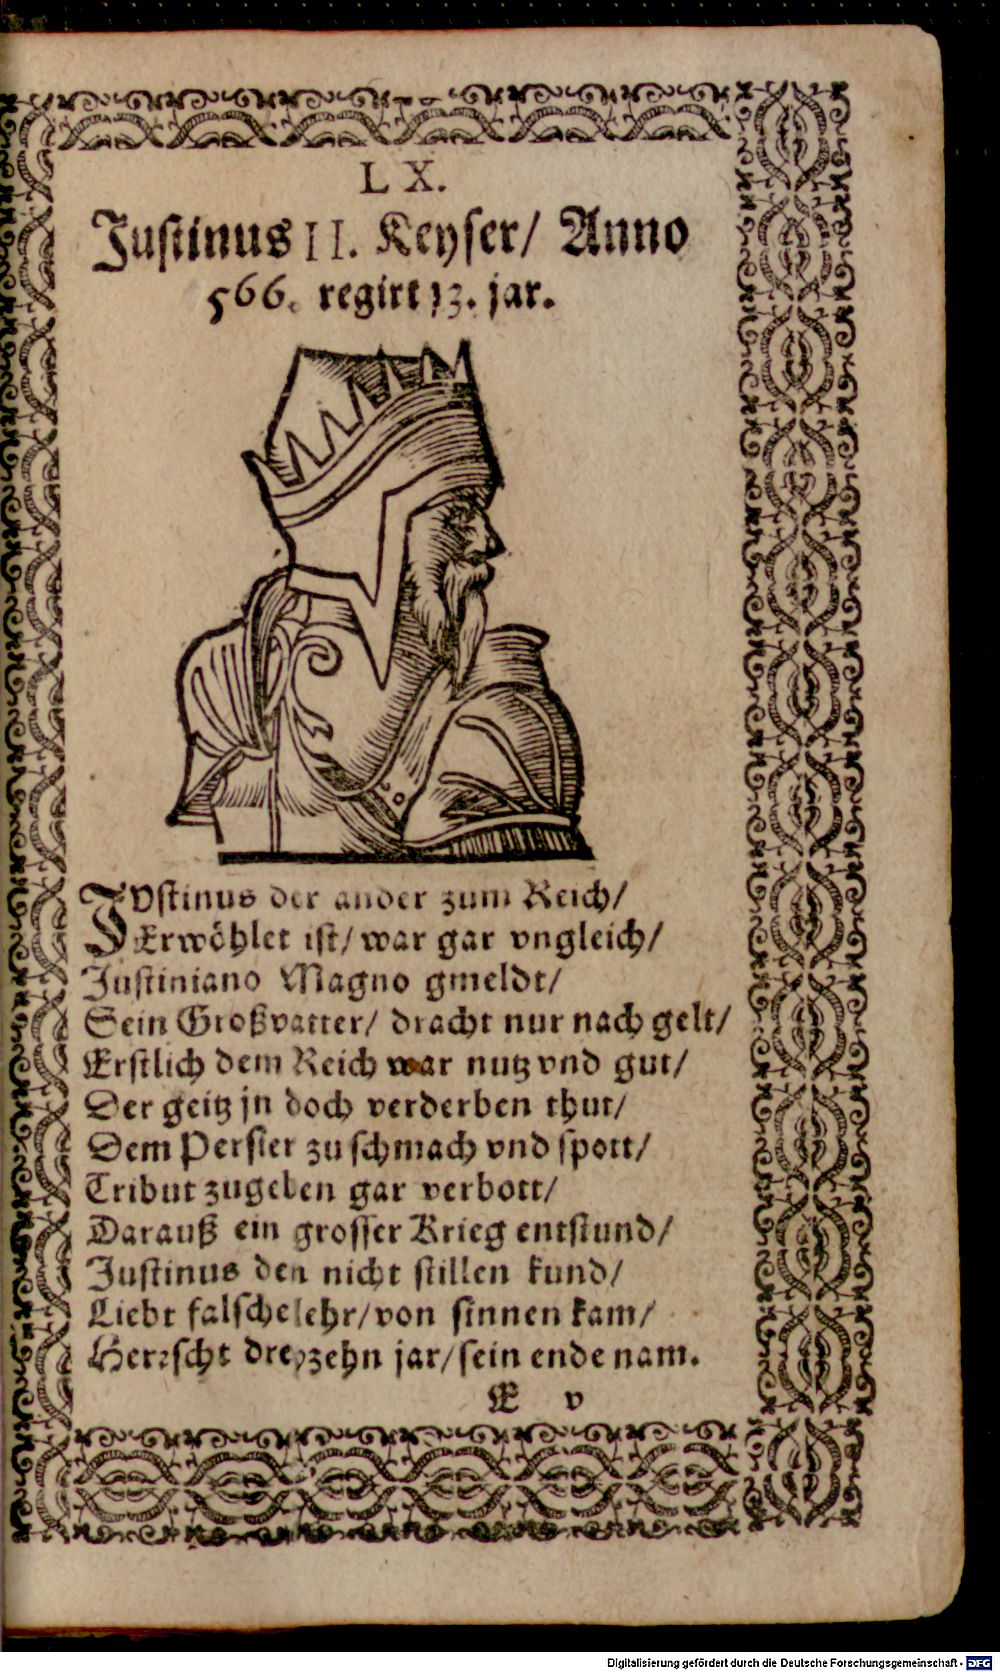 L X.
Justinus II. Keyser/ Anno
566. regirt 13. jar.
JVstinus der ander zum Reich/
Erwöhlet ist/ war gar vngleich/
Justiniano Magno gmeldt/
Sein Großvatter/ dracht nur nach gelt/
Erstlich dem Reich war nutz vnd gut/
Der geitz jn doch verderben thut/
Dem Persier zu schmach vnd spott/
Tribut zugeben gar verbott/
Darauß ein grosser Krieg entstund/
Justinus den nicht stillen kund/
Liebt falsche lehr/ von sinnen kam/
Herrscht dreyzehn jar/ sein ende nam.
E v
Digitalisierung gefördert durch die Deutsche Forschungsgemeinschaft - DFG